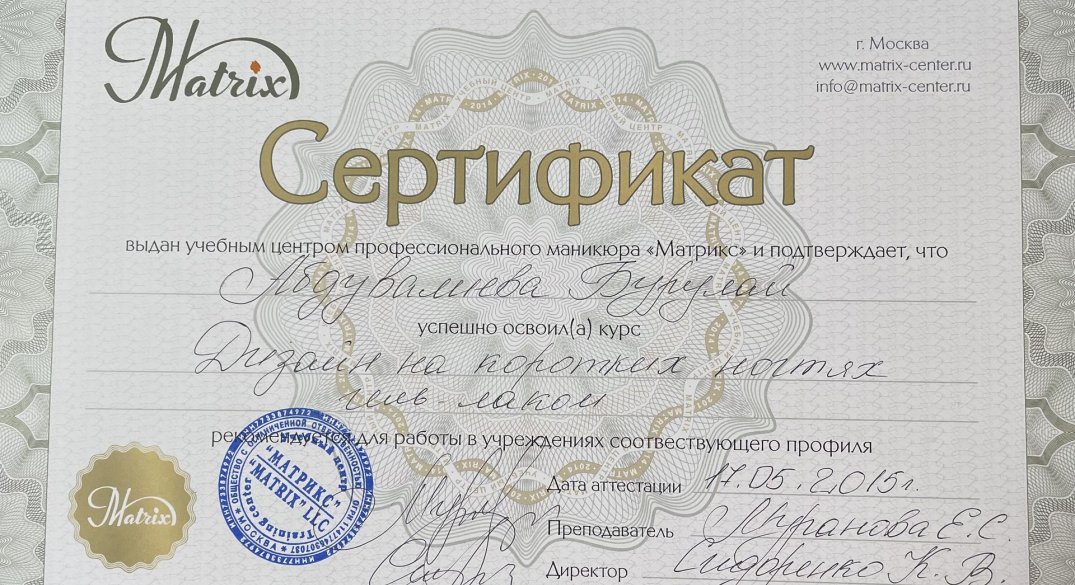 Matrix
г. Москва
www.matrix-center.ru
info@matrix-center.ru
Сертификат
выдан учебным центром профессионального маникюра «Матрикс» и подтверждает, что
Абдувалиева Бурулай
успешно освоил(а) курс
Дизайн на коротких ногтях
гель-лаком
рекомендуется для работы в учреждениях соотвествующего профиля
Дата аттестации 17.05.2015г.
Преподаватель Е.С.
Директор Сидоренко К.В.
Matrix
ОБЩЕСТВО С ОГРАНИЧЕННОЙ ОТВЕТСТВЕННОСТЬЮ
Учебный центр
"МАТРИКС"
"MATRIX" LLC
Training center
* МОСКВА *